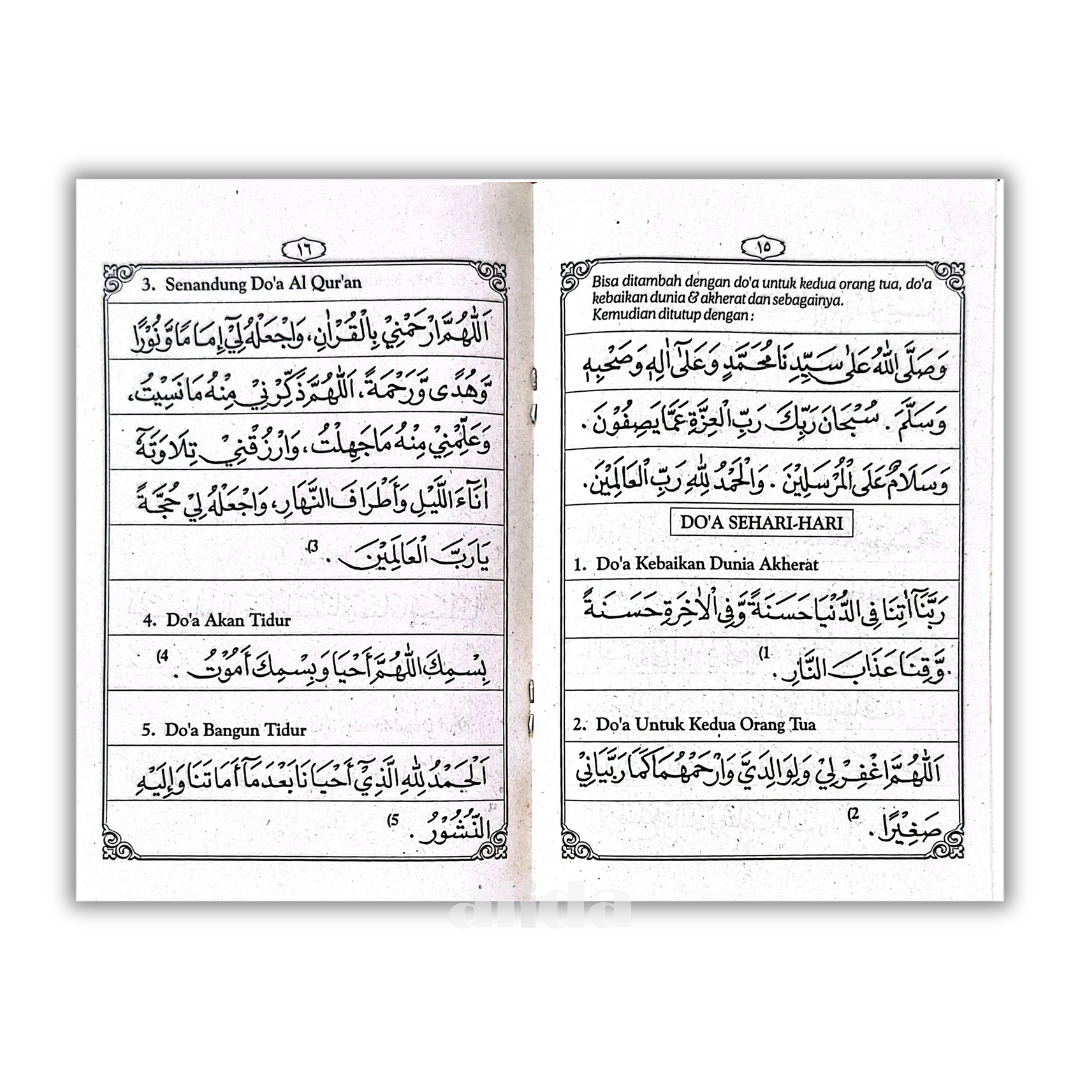 ١٥
Bisa ditambah dengan do'a untuk kedua orang tua, do'a
kebaikan dunia & akherat dan sebagainya.
Kemudian ditutup dengan :
وَصَلَّى اللّٰهُ عَلٰى سَيِّدِنَا مُحَمَّدٍ وَعَلٰٓى اٰلِهٖ وَصَحْبِهٖ
وَسَلَّمَ . سُبْحَانَ رَبِّكَ رَبِّ الْعِزَّةِ عَمَّا يَصِفُوْنَ .
وَسَلَامٌ عَلَى الْمُرْسَلِيْنَ . وَالْحَمْدُ لِلّٰهِ رَبِّ الْعَالَمِيْنَ.
DO'A SEHARI-HARI
1. Do'a Kebaikan Dunia Akherat
رَبَّنَآ اٰتِنَا فِى الدُّنْيَا حَسَنَةً وَّفِى الْاٰخِرَةِ حَسَنَةً
وَّقِنَا عَذَابَ النَّارِ . 1)
2. Do'a Untuk Kedua Orang Tua
اَللّٰهُمَّ اغْفِرْ لِيْ وَلِوَالِدَيَّ وَارْحَمْهُمَا كَمَا رَبَّيَانِيْ
صَغِيْرًا . 2)
١٦
3. Senandung Do'a Al Qur'an
اَللّٰهُمَّ ارْحَمْنِيْ بِالْقُرْاٰنِ، وَاجْعَلْهُ لِيْٓ إِمَامًا وَّنُوْرًا
وَّهُدًى وَّرَحْمَةً، اَللّٰهُمَّ ذَكِّرْنِيْ مِنْهُ مَا نَسِيْتُ،
وَعَلِّمْنِيْ مِنْهُ مَا جَهِلْتُ، وَارْزُقْنِيْ تِلَاوَتَهٗٓ
اٰنَآءَ اللَّيْلِ وَأَطْرَافَ النَّهَارِ، وَاجْعَلْهُ لِيْ حُجَّةً
يَارَبَّ الْعَالَمِيْنَ . 3)
4. Do'a Akan Tidur
بِسْمِكَ اللّٰهُمَّ أَحْيَا وَبِسْمِكَ أَمُوْتُ . 4)
5. Do'a Bangun Tidur
اَلْحَمْدُ لِلّٰهِ الَّذِيْٓ أَحْيَانَا بَعْدَ مَآ أَمَاتَنَا وَإِلَيْهِ
النُّشُوْرُ . 5)